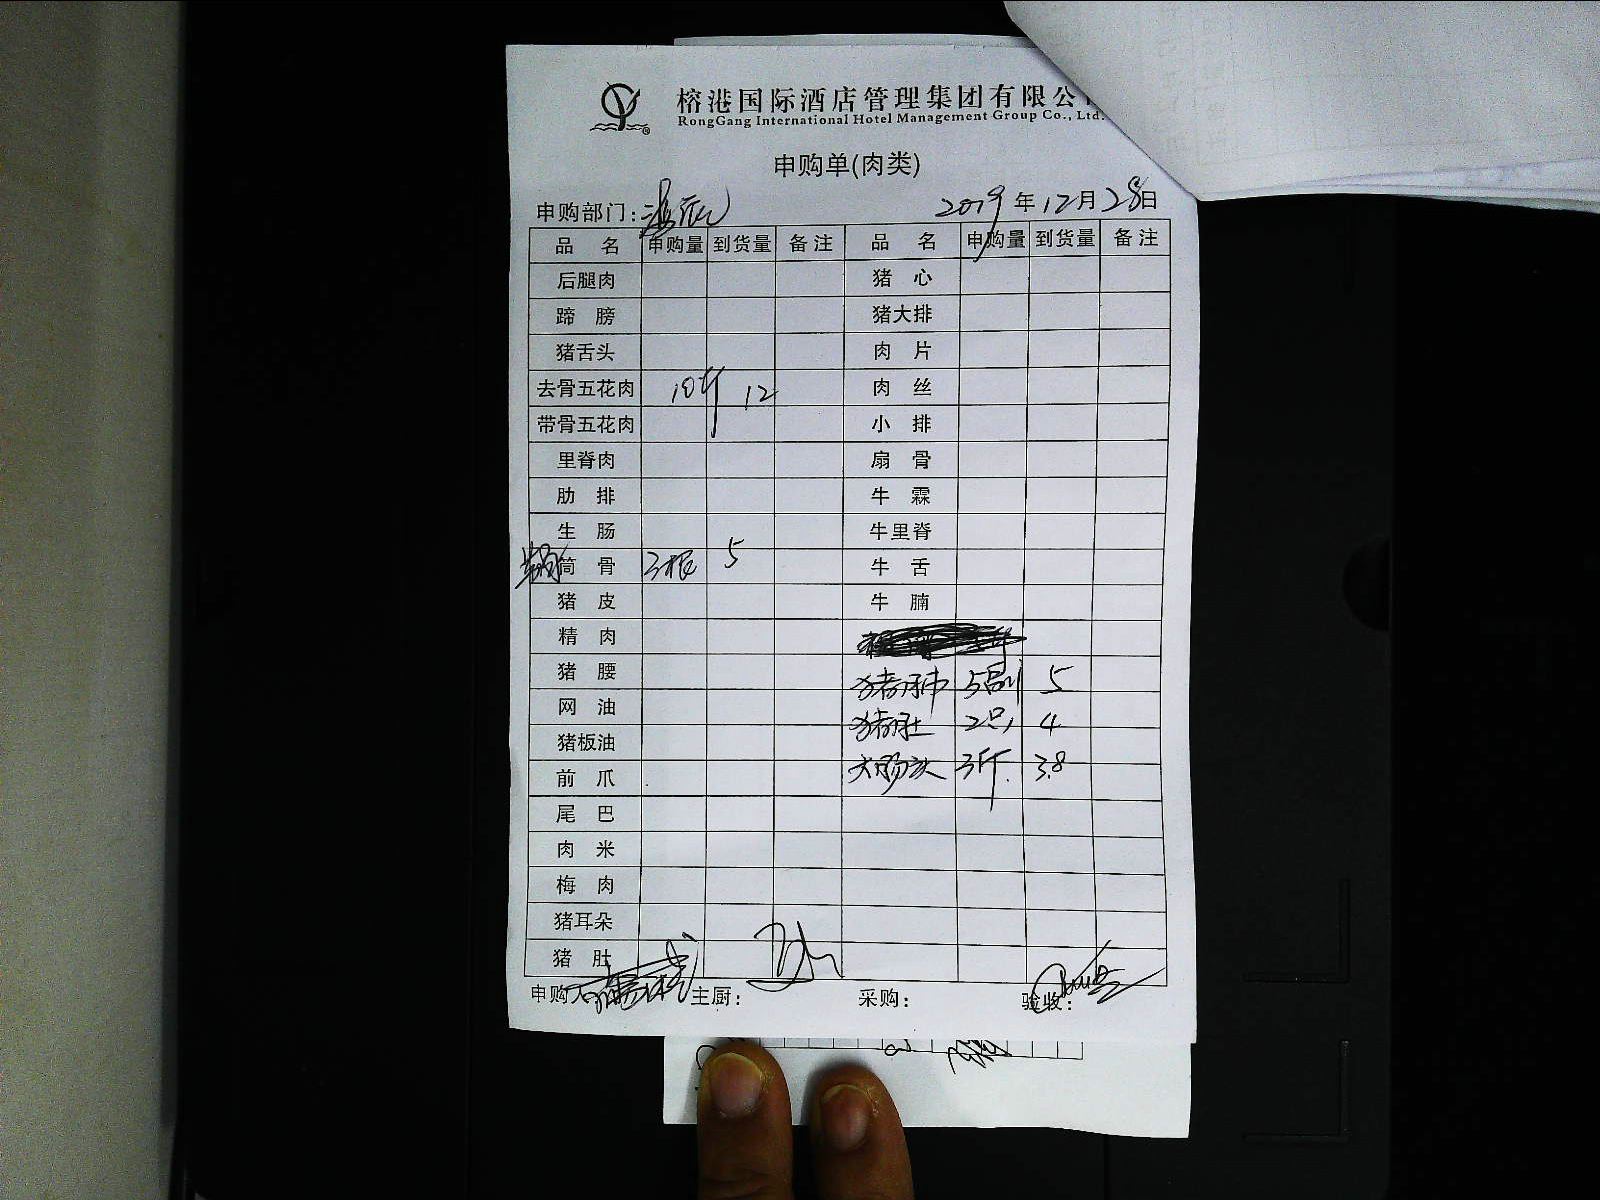 榕港国际酒店管理集团有限公
RongGang International Hotel Management Group Co., Ltd.
申购单(肉类)
申购部门:
2019年12月28日
品 名 申购量 到货量 备注 品 名 申购量 到货量 备注
后腿肉 猪 心
蹄 膀 猪大排
猪舌头 肉 片
去骨五花肉 10斤 12 肉 丝
带骨五花肉 小 排
里脊肉 扇 骨
肋 排 牛 霖
生 肠 牛里脊
筒 骨 3根 5 牛 舌
猪 皮 牛 腩
精 肉
猪 腰 猪肺 5副 5
网 油 猪肚 2只 4
猪板油 大肠头 3斤 3.8
前 爪
尾 巴
肉 米
梅 肉
猪耳朵
猪 肚
申购人 主厨: 采购: 验收: